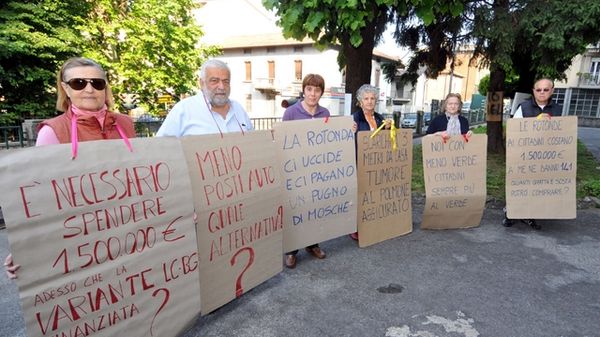 È NECESSARIO
SPENDERE
1.500.000 €
ADESSO CHE LA
VARIANTE LC-BG
FINANZIATA?
MENO
POSTI AUTO
QUALE
ALTERNATIVA
?
LA ROTONDA
CI UCCIDE
E CI PAGANO
UN PUGNO
DI MOSCHE
SLARGHI A 3
METRI DA CASA
TUMORE
AL POLMONE
ASSICURATO
NON CON
MENO VERDE.
CITTADINI
SEMPRE PIÙ
AL VERDE
LE ROTONDE
AI CITTADINI COSTANO
1.500.000 €
A ME NE DANNO 141
QUANTI GRATTA E SOSTA
POTRÒ COMPRARE?